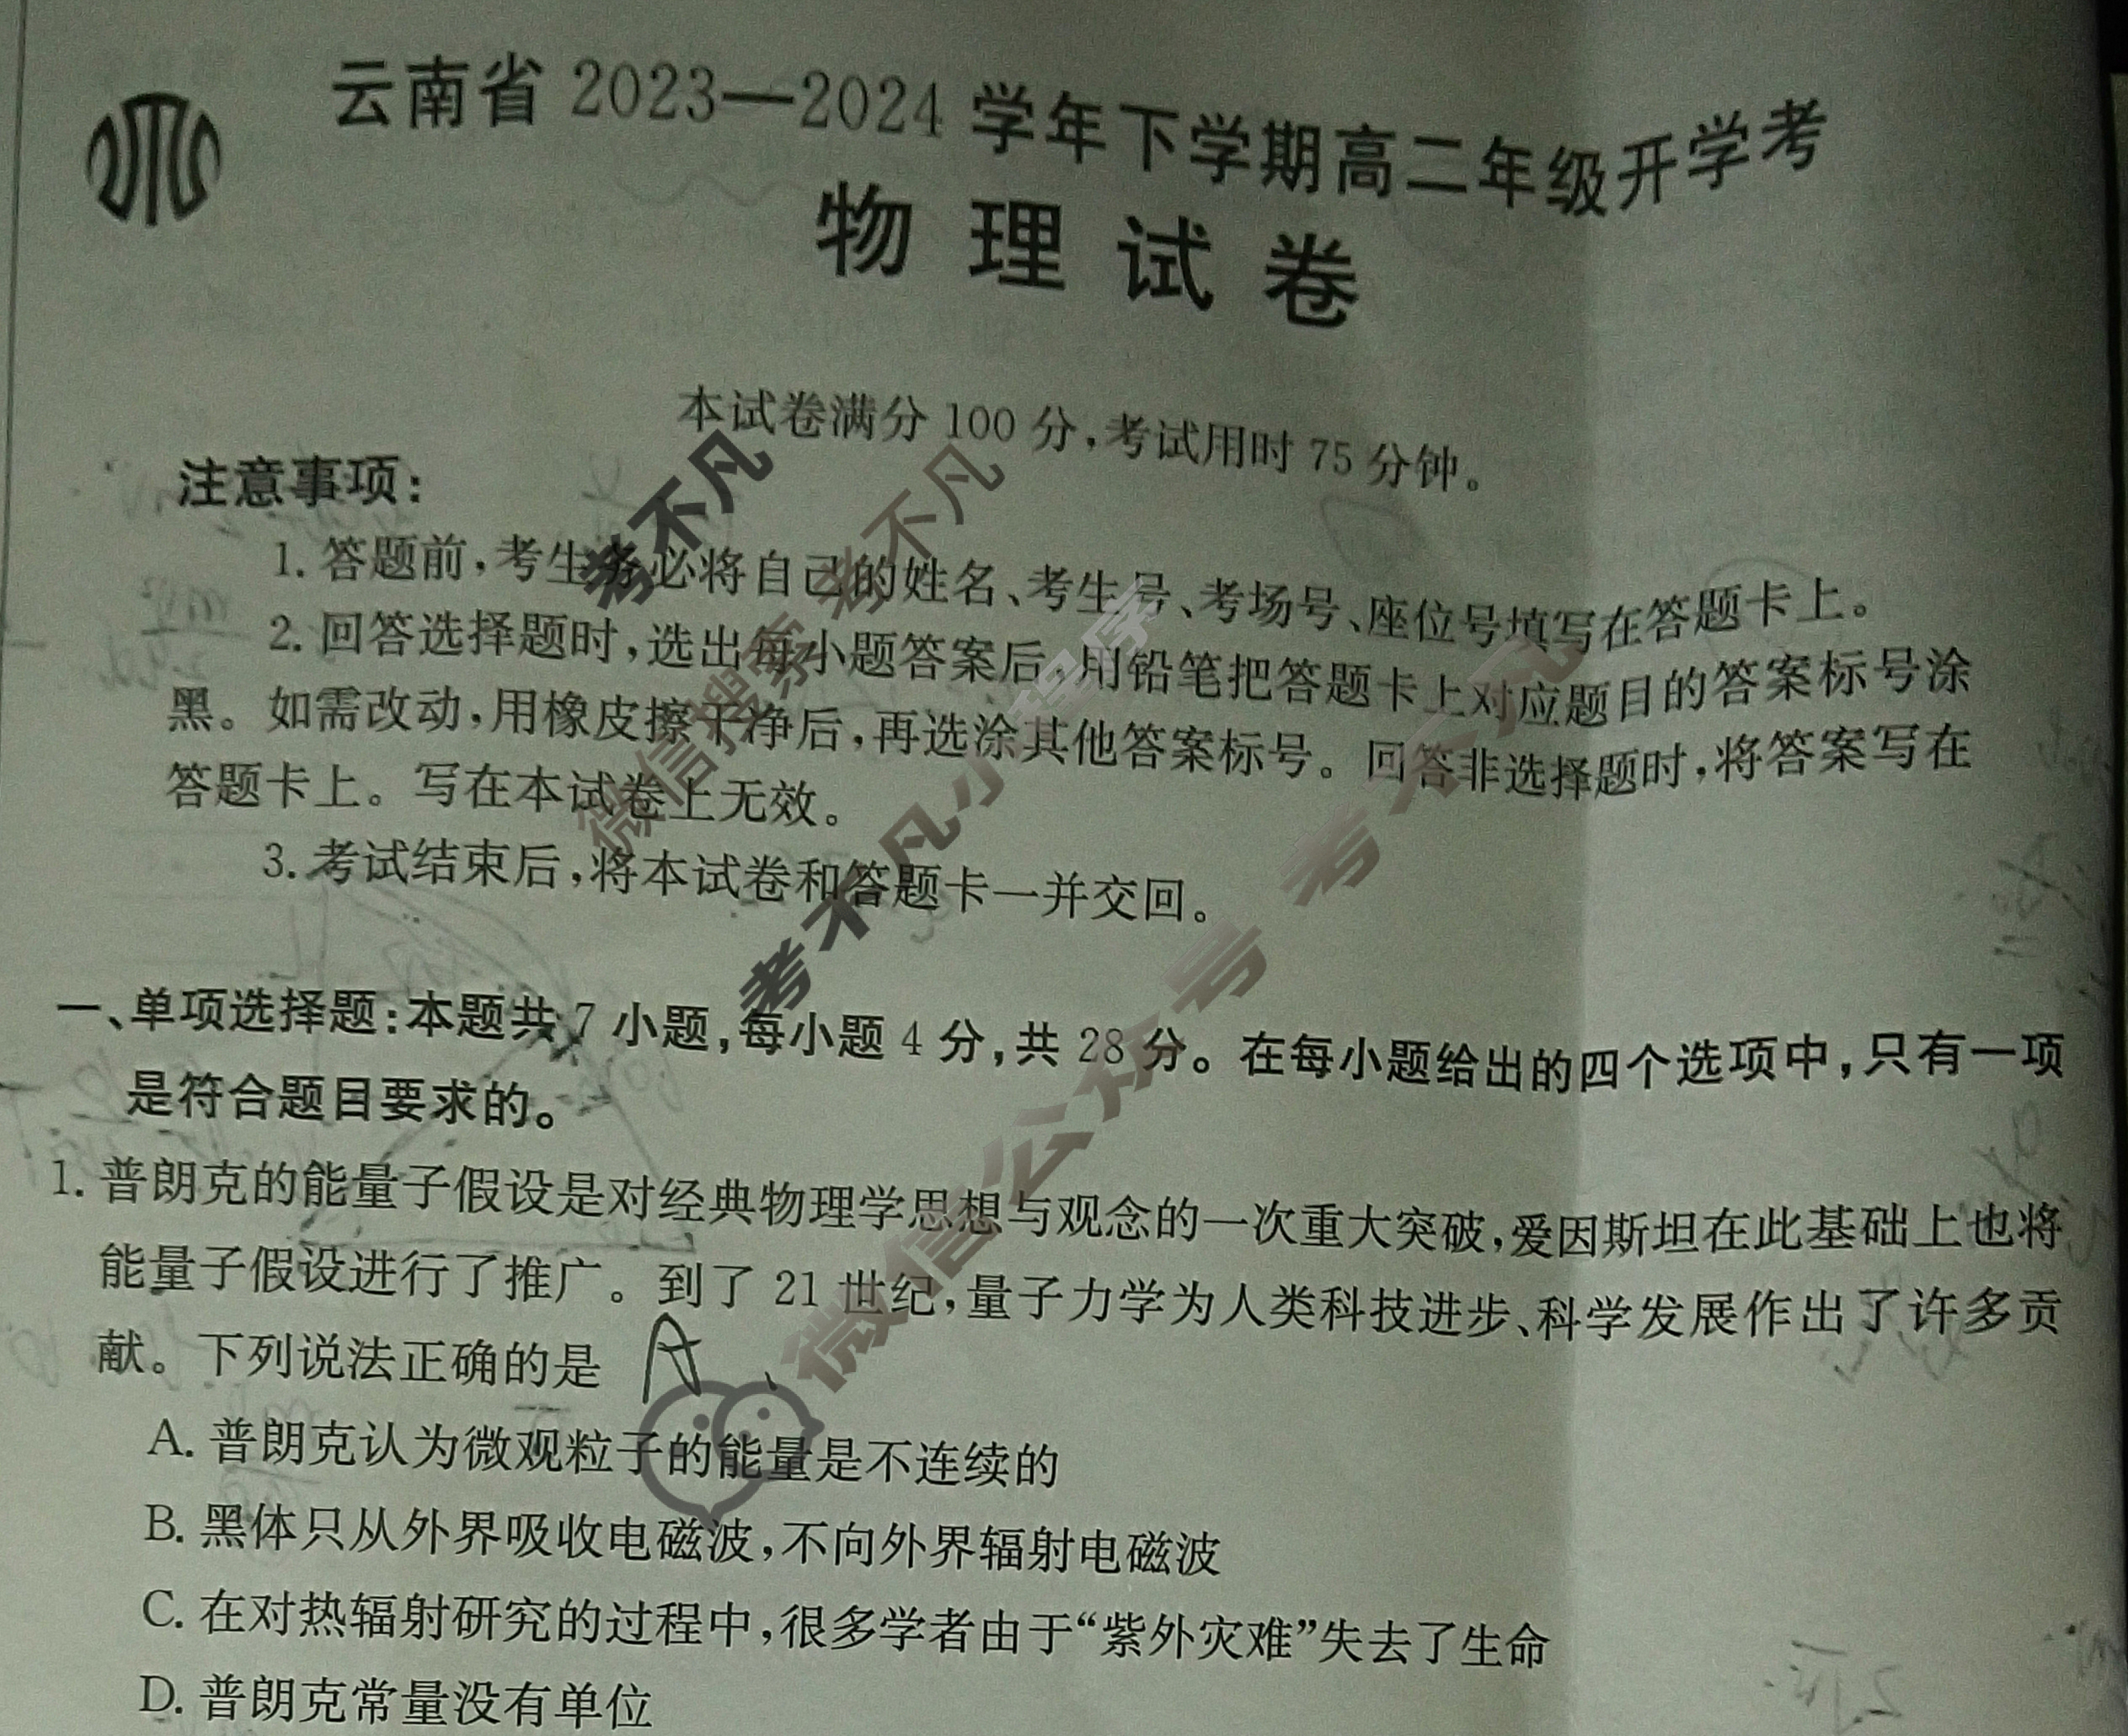 云南省 2023—2024 学年下学期高二年级开学考
物理试卷
本试卷满分 100 分,考试用时 75 分钟。
注意事项:
1. 答题前,考生务必将自己的姓名、考生号、考场号、座位号填写在答题卡上。
2. 回答选择题时,选出每小题答案后,用铅笔把答题卡上对应题目的答案标号涂
黑。如需改动,用橡皮擦干净后,再选涂其他答案标号。回答非选择题时,将答案写在
答题卡上。写在本试卷上无效。
3. 考试结束后,将本试卷和答题卡一并交回。
一、单项选择题:本题共 7 小题,每小题 4 分,共 28 分。在每小题给出的四个选项中,只有一项
是符合题目要求的。
1. 普朗克的能量子假设是对经典物理学思想与观念的一次重大突破,爱因斯坦在此基础上也将
能量子假设进行了推广。到了 21 世纪,量子力学为人类科技进步、科学发展作出了许多贡
献。下列说法正确的是 A
A. 普朗克认为微观粒子的能量是不连续的
B. 黑体只从外界吸收电磁波,不向外界辐射电磁波
C. 在对热辐射研究的过程中,很多学者由于“紫外灾难”失去了生命
D. 普朗克常量没有单位
考不凡
微信搜索 考不凡
考不凡小程序
微信公众号 考不凡